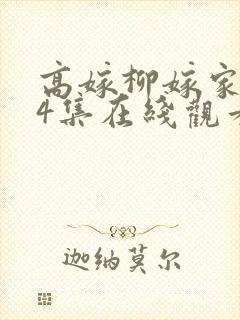 高嫁柳嫁家
4集在綫觀看
迦纳莫尔